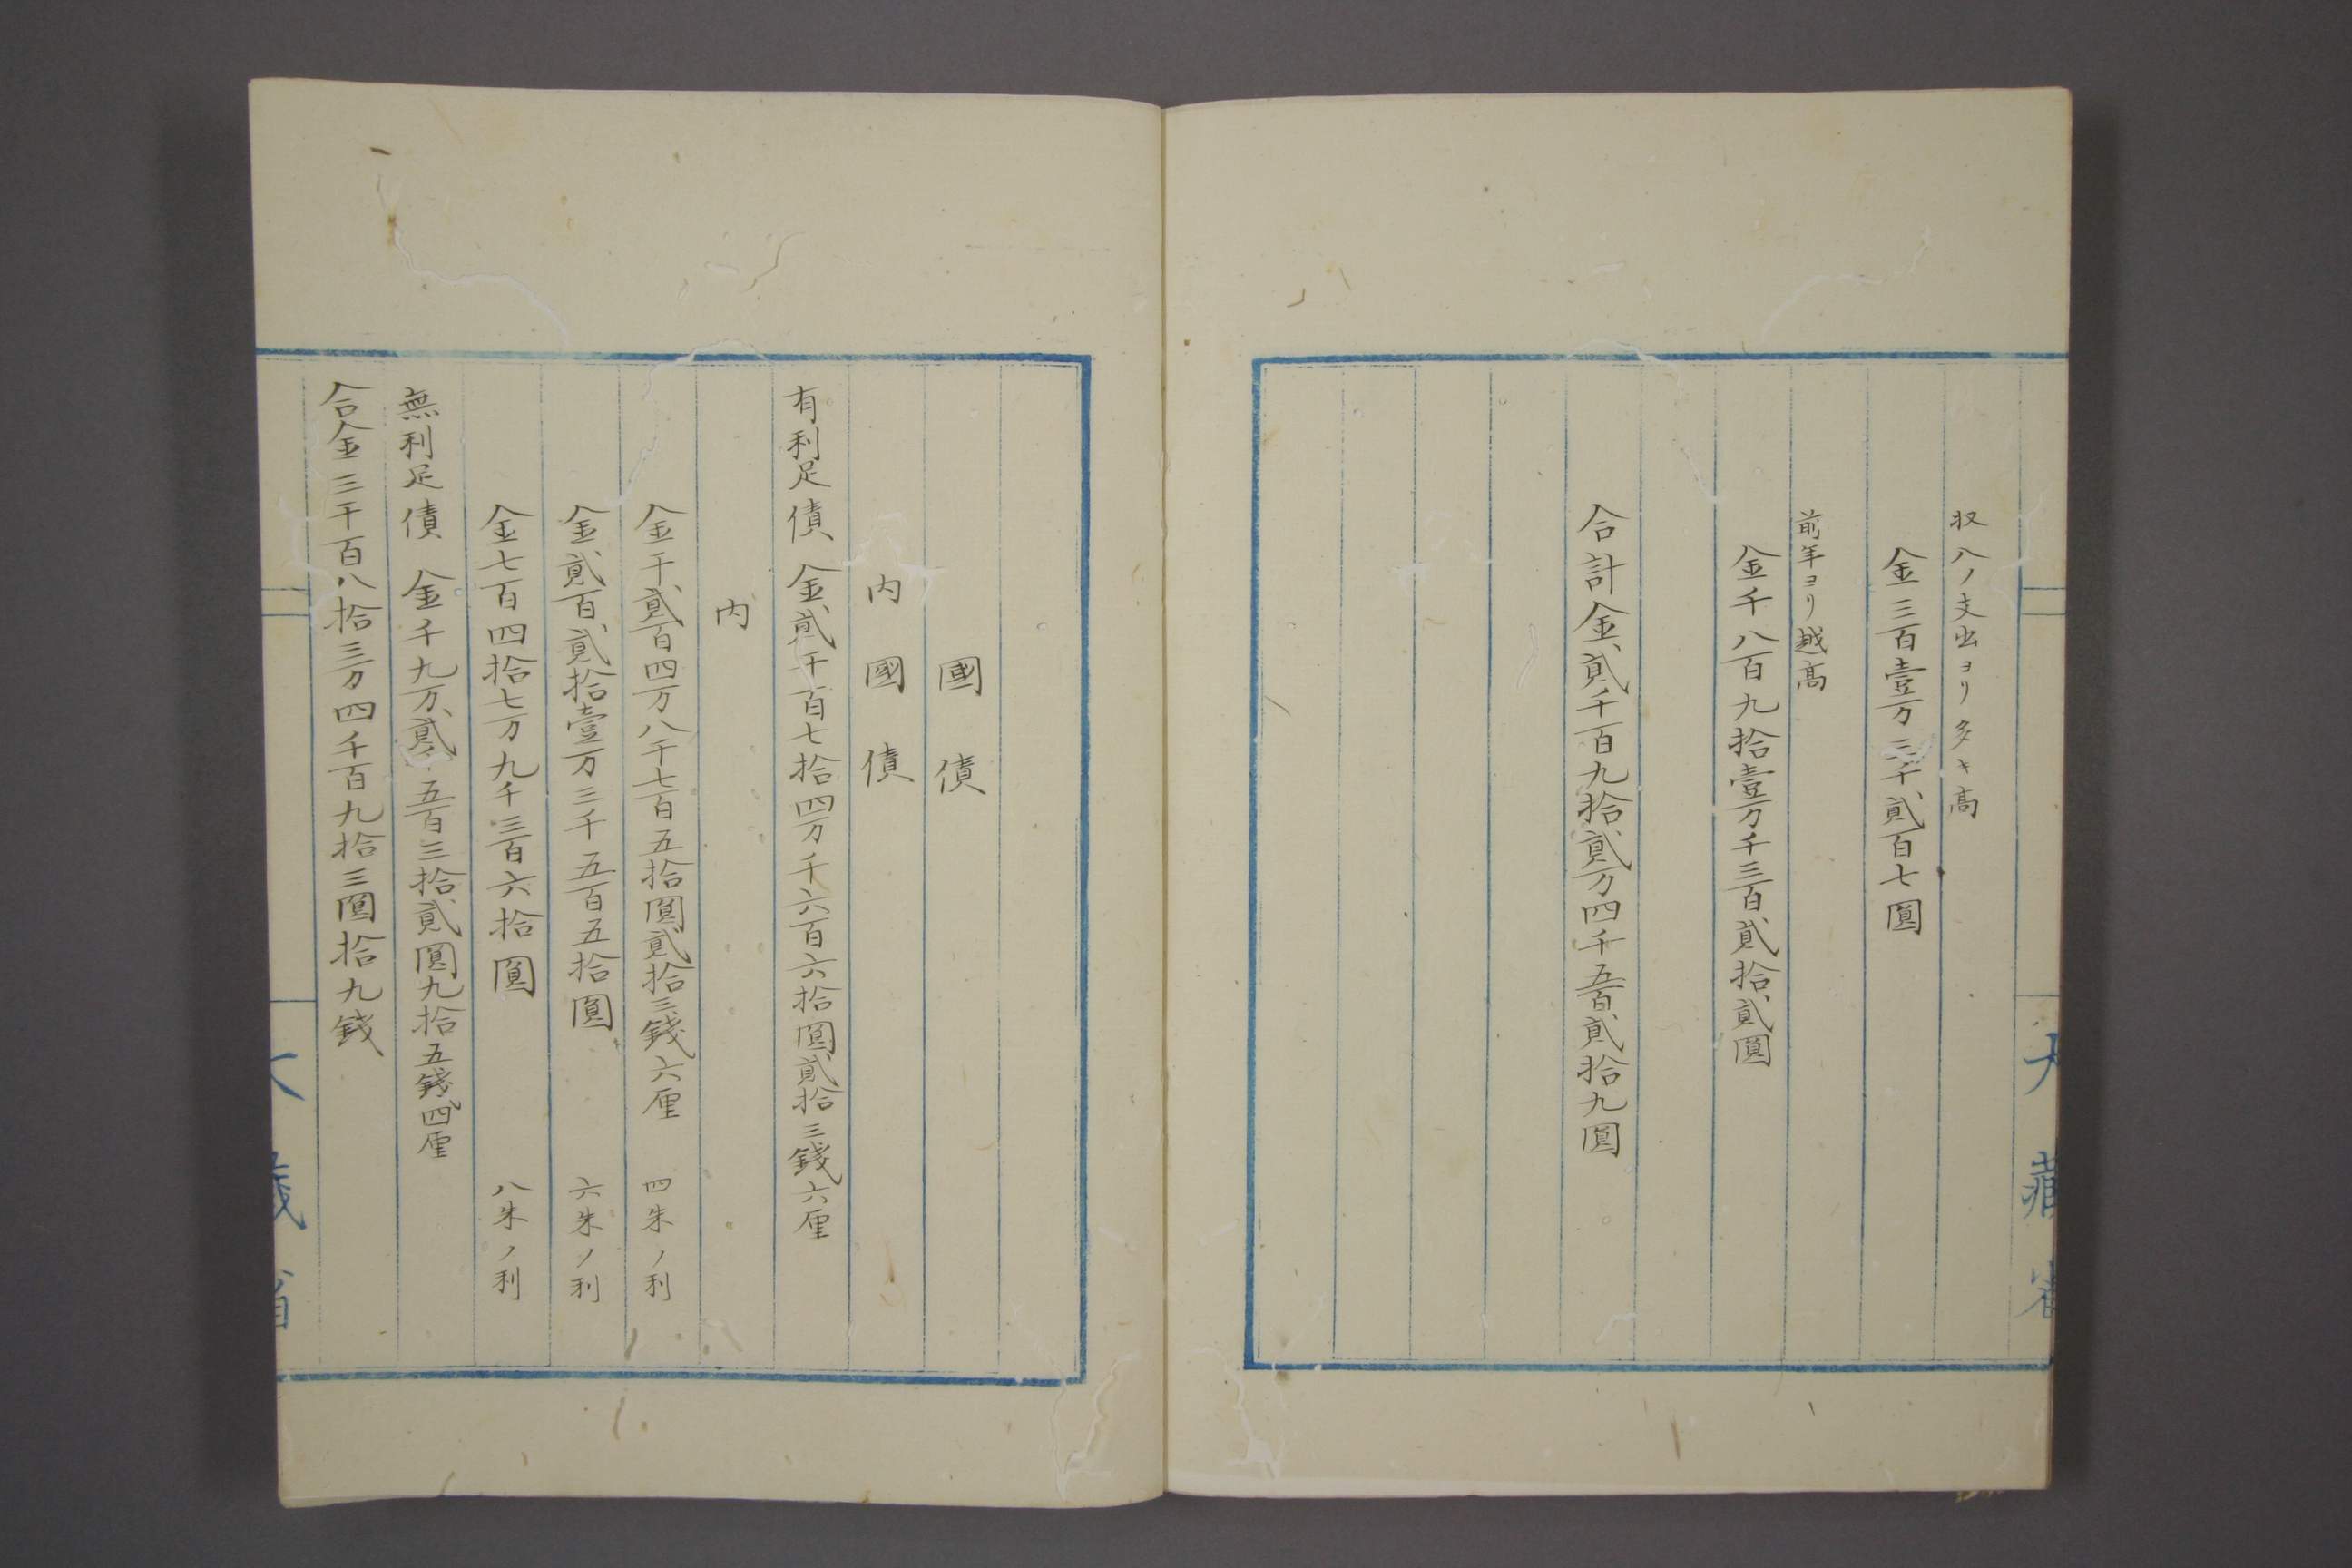 大藏省
収入ノ支出ヨリ多キ高
金三百壹万三千貳百七圓
前年ヨリ越高
金千八百九拾壹万千三百貳拾貳圓
合計金貳千百九拾貳万四千五百貳拾九圓
國債
内國債
有利足債 金貳千百七拾四万千六百六拾圓貳拾三錢六厘
内
金千貳百四万八千七百五拾圓貳拾三錢六厘 四朱ノ利
金貳百貳拾壹万三千五百五拾圓 六朱ノ利
金七百四拾七万九千三百六拾圓 八朱ノ利
無利足債 金千九万貳千五百三拾貳圓九拾五錢四厘
合金三千百八拾三万四千百九拾三圓拾九錢
大藏省